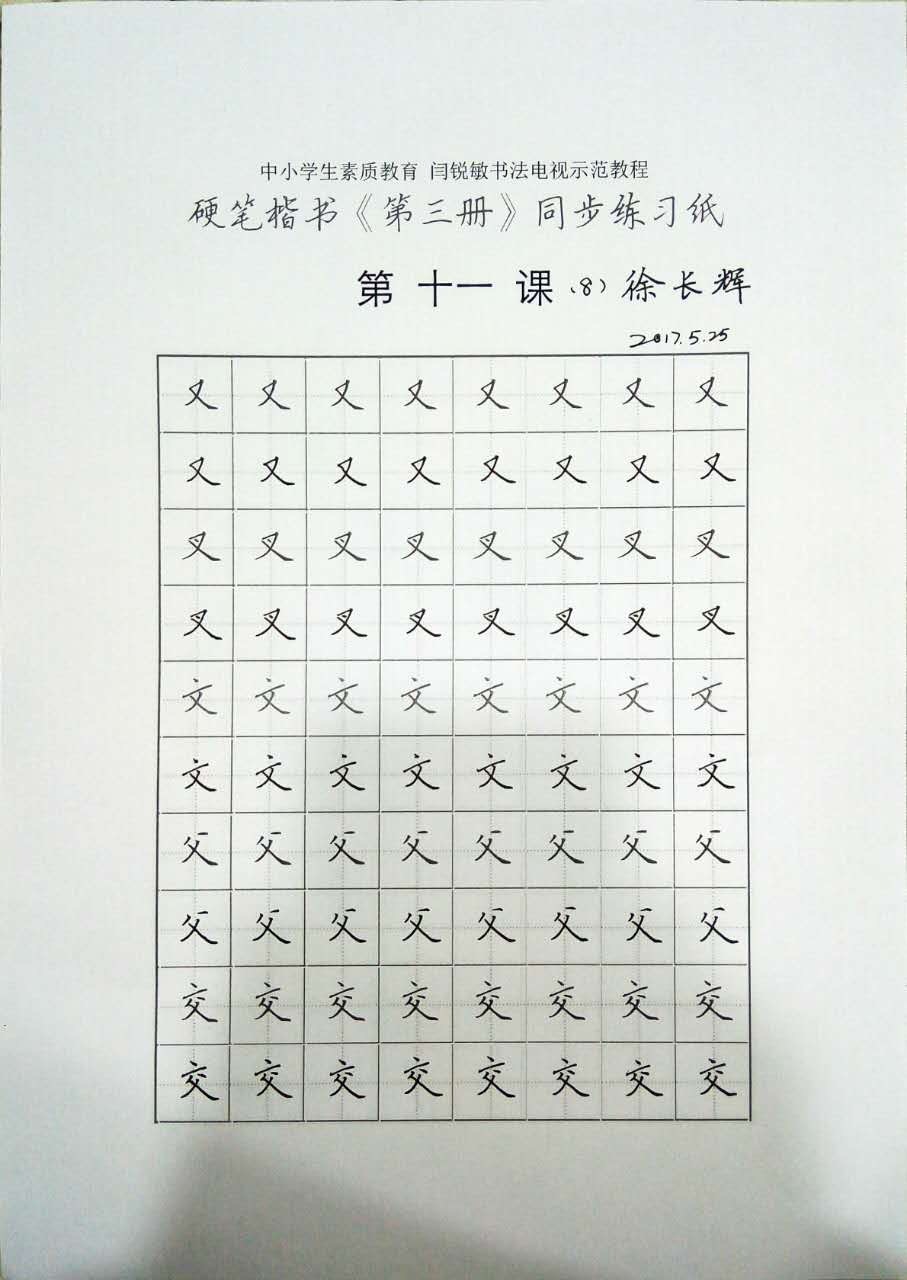 中小学生素质教育 闫锐敏书法电视示范教程
硬笔楷书《第三册》同步练习纸
第 十一 课 (8) 徐长辉
2017.5.25
又 又 又 又 又 又 又 又
又 又 又 又 又 又 又 又
叉 叉 叉 叉 叉 叉 叉 叉
叉 叉 叉 叉 叉 叉 叉 叉
文 文 文 文 文 文 文 文
文 文 文 文 文 文 文 文
父 父 父 父 父 父 父 父
父 父 父 父 父 父 父 父
交 交 交 交 交 交 交 交
交 交 交 交 交 交 交 交